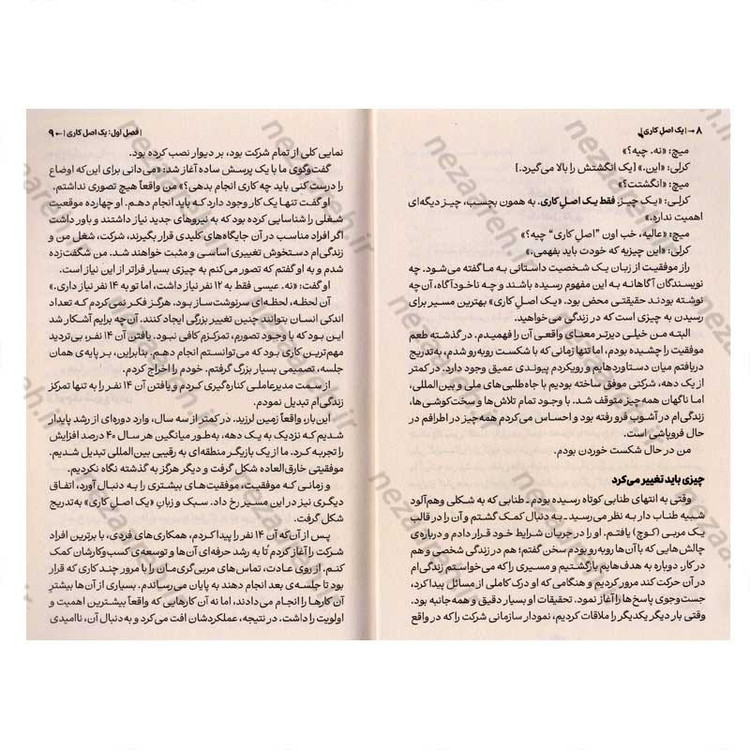 ۸ → | یک اصل کاری |
میچ: «نه. چیه؟»
کرلی: «این.» [یک انگشتش را بالا می‌گیرد.]
میچ: «انگشتت؟»
کرلی: «یک چیز. فقط یک اصلِ کاری. به همون بچسب، چیز دیگه‌ای
اهمیت نداره.»
میچ: «عالیه، خب اون "اصل کاری" چیه؟»
کرلی: «این چیزیه که خودت باید بفهمی.»
راز موفقیت از زبان یک شخصیت داستانی به ما گفته می‌شود. چه
نویسندگان آگاهانه به این مفهوم رسیده باشند و چه ناخودآگاه، آن‌چه
نوشته بودند حقیقتی محض بود. «یک اصل کاری» بهترین مسیر برای
رسیدن به چیزی است که در زندگی می‌خواهید.
البته من خیلی دیرتر معنای واقعی آن را فهمیدم. در گذشته طعم
موفقیت را چشیده بودم، اما تنها زمانی که با شکست روبه‌رو شدم، به‌تدریج
دریافتم میان دستاوردهایم و رویکردم پیوندی عمیق وجود دارد. در کمتر
از یک دهه، شرکتی موفق ساخته بودیم با جاه‌طلبی‌های ملی و بین‌المللی،
اما ناگهان همه‌چیز متوقف شد. با وجود تمام تلاش‌ها و سخت‌کوشی‌ها،
زندگی‌ام در آشوب فرو رفته بود و احساس می‌کردم همه‌چیز در اطرافم در
حال فروپاشی است.
من در حال شکست خوردن بودم.
چیزی باید تغییر می‌کرد
وقتی به انتهای طنابی کوتاه رسیده بودم ـ طنابی که به شکلی وهم‌آلود
شبیه طناب دار به نظر می‌رسید ـ به دنبال کمک گشتم و آن را در قالب
یک مربی (کوچ) یافتم. او را در جریان شرایط خود قرار دادم و درباره‌ی
چالش‌هایی که با آن‌ها روبه‌رو بودم سخن گفتم؛ هم در زندگی شخصی و هم
در کار. دوباره به هدف‌هایم بازگشتیم و مسیری را که می‌خواستم زندگی‌ام
در آن حرکت کند مرور کردیم و هنگامی که او درک کاملی از مسائل پیدا کرد،
جست‌وجوی پاسخ‌ها را آغاز نمود. تحقیقات او بسیار دقیق و همه‌جانبه بود.
وقتی بار دیگر یکدیگر را ملاقات کردیم، نمودار سازمانی شرکت را که در واقع
| فصل اول: یک اصل کاری | ← ۹
نمایی کلی از تمام شرکت بود، بر دیوار نصب کرده بود.
گفت‌وگوی ما با یک پرسش ساده آغاز شد: «می‌دانی برای این‌که اوضاع
را درست کنی باید چه کاری انجام بدهی؟» من واقعاً هیچ تصوری نداشتم.
او گفت تنها یک کار وجود دارد که باید انجام دهم. او چهارده موقعیت
شغلی را شناسایی کرده بود که به نیروهای جدید نیاز داشتند و باور داشت
اگر افراد مناسب در آن جایگاه‌های کلیدی قرار بگیرند، شرکت، شغل من و
زندگی‌ام دستخوش تغییری اساسی و مثبت خواهند شد. من شگفت‌زده
شدم و به او گفتم که تصور می‌کنم به چیزی بسیار فراتر از این نیاز است.
او گفت: «نه. عیسی فقط به ۱۲ نفر نیاز داشت، اما تو به ۱۴ نفر نیاز داری.»
آن لحظه، لحظه‌ای سرنوشت‌ساز بود. هرگز فکر نمی‌کردم که تعداد
اندکی انسان بتوانند چنین تغییر بزرگی ایجاد کنند. آن‌چه برایم آشکار شد
این بود که با وجود تصورم، تمرکزم کافی نبود. یافتن آن ۱۴ نفر بی‌تردید
مهم‌ترین کاری بود که می‌توانستم انجام دهم. بنابراین، بر پایه‌ی همان
جلسه، تصمیمی بسیار بزرگ گرفتم. خودم را اخراج کردم.
از سمت مدیرعاملی کناره‌گیری کردم و یافتن آن ۱۴ نفر را به تنها تمرکز
زندگی‌ام تبدیل نمودم.
این‌بار، واقعاً زمین لرزید. در کمتر از سه سال، وارد دوره‌ای از رشد پایدار
شدیم که نزدیک به یک دهه، به‌طور میانگین هر سال ۴۰ درصد افزایش
را تجربه کرد. ما از یک بازیگر منطقه‌ای به رقیبی بین‌المللی تبدیل شدیم.
موفقیتی خارق‌العاده شکل گرفت و دیگر هرگز به گذشته نگاه نکردیم.
و زمانی که موفقیت، موفقیت‌های بیشتری را به دنبال آورد، اتفاق
دیگری نیز در این مسیر رخ داد. سبک و زبانِ «یک اصلِ کاری» به‌تدریج
شکل گرفت.
پس از آن‌که آن ۱۴ نفر را پیدا کردم، همکاری‌های فردی، با برترین افراد
شرکت را آغاز کردم تا به رشد حرفه‌ای آن‌ها و توسعه‌ی کسب‌وکارشان کمک
کنم. از روی عادت، تماس‌های مربی‌گری‌مان را با مرور چند کاری که قرار
بود تا جلسه‌ی بعد انجام دهند به پایان می‌رساندم. بسیاری از آن‌ها بیشترِ
آن کارها را انجام می‌دادند، اما نه آن کارهایی که واقعاً بیشترین اهمیت و
اولویت را داشت. در نتیجه، عملکردشان افت می‌کرد و به‌دنبال آن، ناامیدی
nezaareh.ir